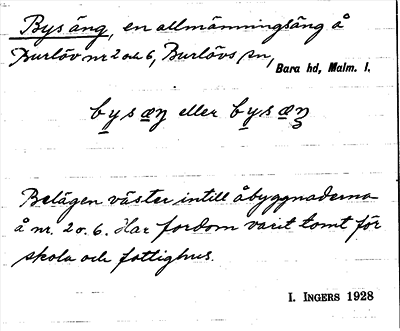 Bys äng, en allmänningsäng å
Burlöv nr 2 och 6, Burlövs sn,
Bara hd, Malm. l.
bysæŋ eller bysæŋ
Belägen väster intill åbyggnaderna
å nr. 2 o. 6. Har fordom varit tomt för
skola och fattighus.
I. INGERS 1928